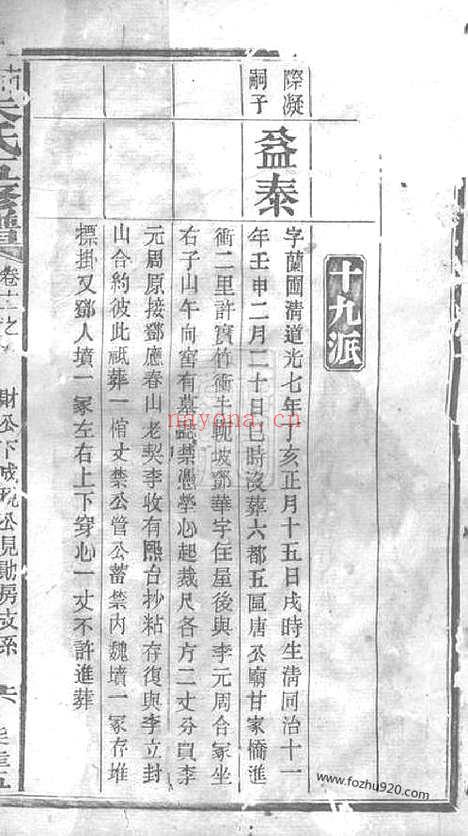 十九派
際凝
嗣子
益泰
字蘭圃清道光七年丁亥正月十五日戌時生清同治十一
年壬申二月二十日巳時沒葬六都五區唐公廟甘家橋進
衝二里許寳竹衝牛軛坡鄧華字住屋後與李元周合冢坐
右子山午向窖有墓誌禁憑塋心起裁尺各方二丈分買李
元周原接鄧應春山老契李收有熙台抄粘存復與李立封
山合約彼此祗葬一棺丈禁公管公蓄禁內魏墳一冢存堆
摽掛又鄧人墳一冢左右上下穿心一丈不許進葬
氏五修譜
卷十
財公下
房支系
六
nayona.cn
www.fozhu920.com